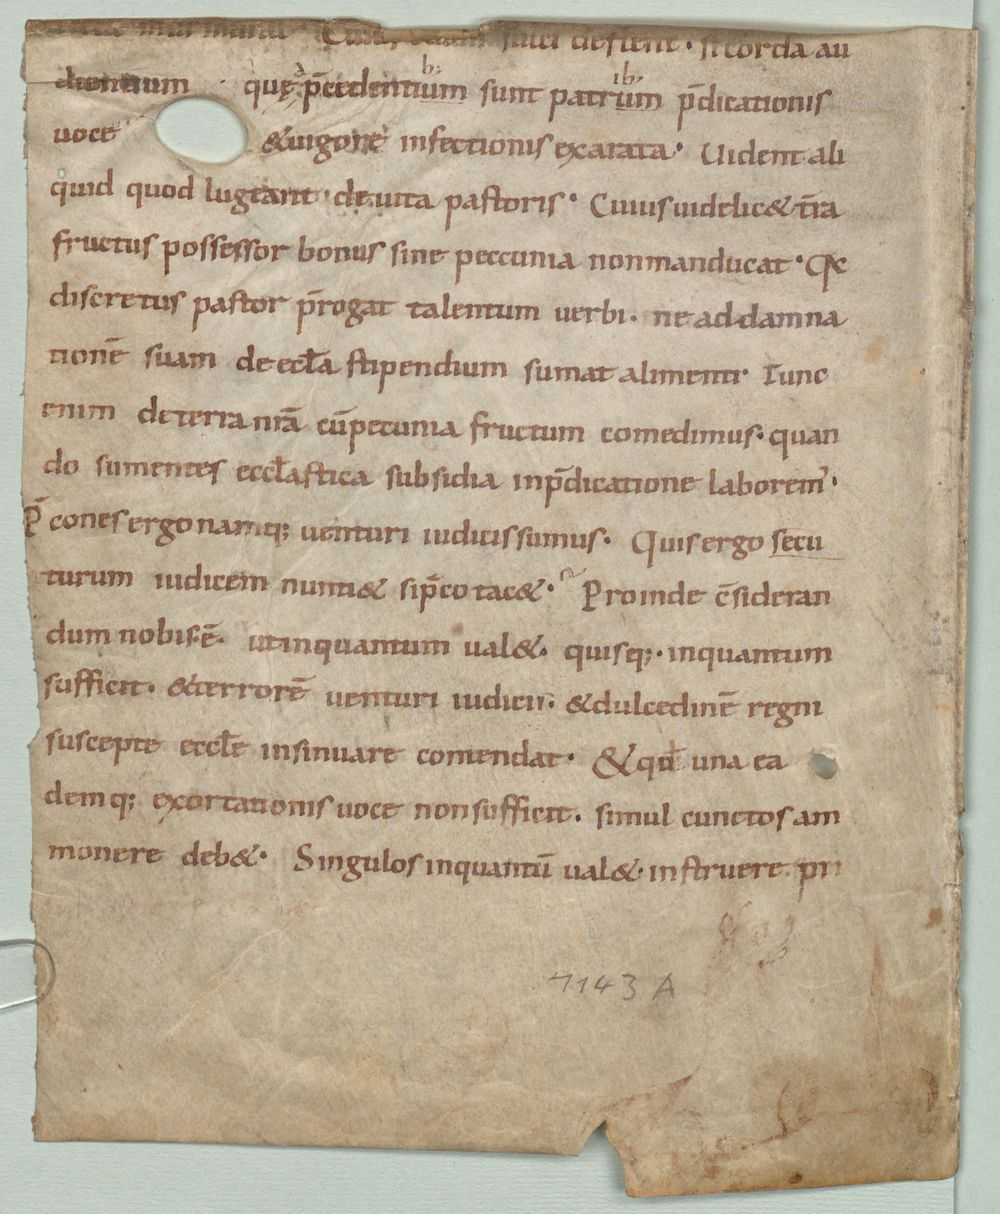 sulci defient · si corda au
dientium · quę p̄cedentium sunt patrum p̄dicationis
voce & uigore infectionis exarata · Uident ali
quid quod lugeant · de uita pastoris · Cuius uidelic& t̄ra
fructus possessor bonus sine peccunia non manducat · Qc
discretus pastor p̄rogat talentum verbi · ne ad damna
tionē suam de eccƚa stipendium sumat alimenti · Tunc
enim de terra nr̄a cū pecunia fructum comedimus · quan
do sumentes eccƚastica subsidia in p̄dicatione laborem᾽ ·
P̄cones ergo namq; venturi iudicis sumus · Quis ergo secu
turum iudicem nunti& si p̄co tac& · Proinde c̄sideran
dum nobis ē · ut in quantum ual& · quisq; · in quantum
sufficit · & terrorē venturi iudicii · & dulcedinē regni
suscepte eccƚe insinuare contendat · & qđ una ea
demq; exortationis uoce non sufficit · simul cunctos am
monere deb& · Singulos in quantū ual& · instruere · pri
7143 A